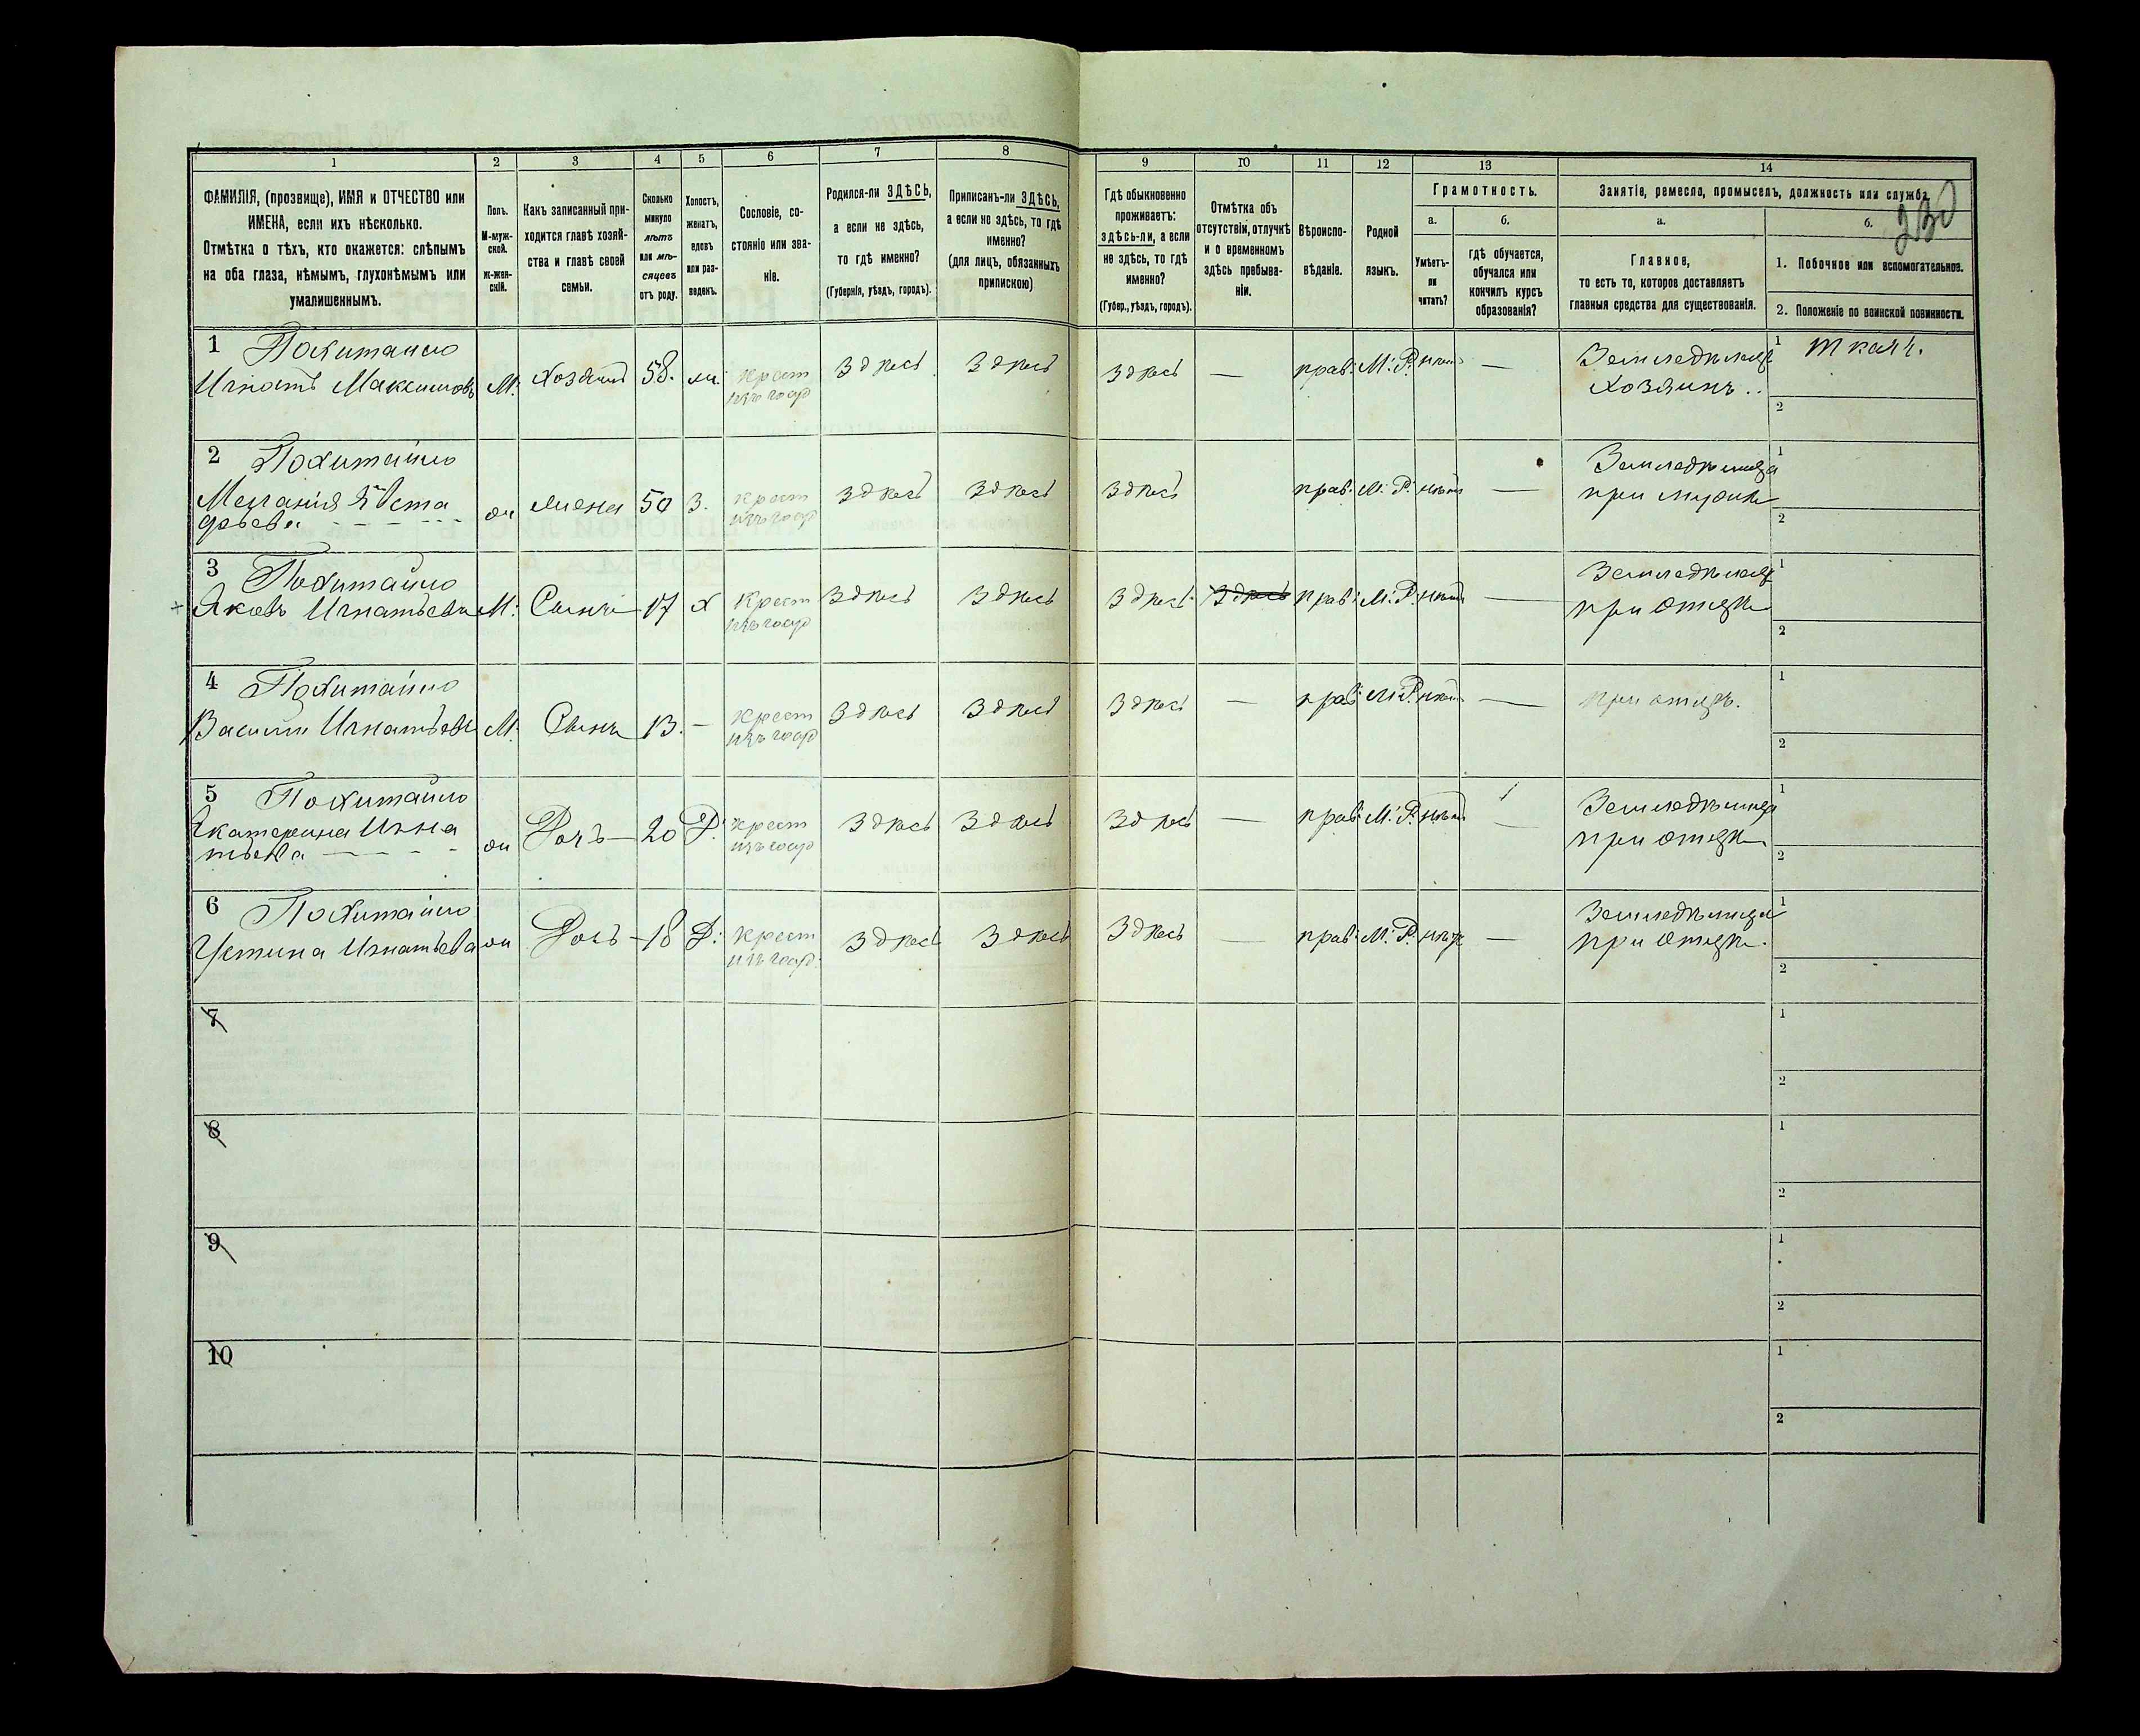 1 2 3 4 5 6 7 8 9 10 11 12 13 14
ФАМИЛІЯ, (прозвище), ИМЯ и ОТЧЕСТВО или
ИМЕНА, если ихъ нѣсколько.
Отмѣтка о тѣхъ, кто окажется: слѣпымъ
на оба глаза, нѣмымъ, глухонѣмымъ или
умалишеннымъ.
Полъ.
М-муж-
ской.
ж-жен-
скій.
Какъ записанный при-
ходится главѣ хозяй-
ства и главѣ своей
семьи.
Сколько
минуло
лѣтъ
или мѣ-
сяцевъ
отъ роду.
Холостъ,
женатъ,
вдовъ
или раз-
веденъ.
Сословіе, со-
стояніе или зва-
ніе.
Родился-ли ЗДѢСЬ,
а если не здѣсь,
то гдѣ именно?
(Губернія, уѣздъ, городъ).
Приписанъ-ли ЗДѢСЬ,
а если не здѣсь, то гдѣ
именно?
(для лицъ, обязанныхъ
припискою)
Гдѣ обыкновенно
проживаетъ:
здѣсь-ли, а если
не здѣсь, то гдѣ
именно?
(Губер., уѣздъ, городъ).
Отмѣтка объ
отсутствіи, отлучкѣ
и о временномъ
здѣсь пребыва-
ніи.
Вѣроиспо-
вѣданіе.
Родной
языкъ.
Грамотность.
а.
Умѣетъ-
ли
читать?
б.
гдѣ обучается,
обучался или
кончилъ курсъ
образованія?
Занятіе, ремесло, промыселъ, должность или служба
230
а.
Главное,
то есть то, которое доставляетъ
главныя средства для существованія.
б.
1. Побочное или вспомогательное.
2. Положеніе по воинской повинности.
1 Похитайло
Игнатъ Максимовъ М. Хозяинъ 58. ж. крест
изъ госуд
Здѣсь Здѣсь Здѣсь — прав: М. Р. нѣтъ — Земледѣлецъ
Хозяинъ..
1 Ткачъ.
2
2 Похитайло
Мелания Евста
фьева ж жена 50 З. крест
изъ госуд
Здѣсь Здѣсь Здѣсь прав: М. Р. нѣтъ — Земледѣлица
при мужѣ
1
2
3 Похитайло
Яковъ Игнатьевъ М: Сынъ 17 х Крест
изъ госуд
Здѣсь Здѣсь Здѣсь Здѣсь прав: М. Р. нѣтъ — Земледѣлецъ
при отцѣ
1
2
4 Похитайло
Василій Игнатьевъ М. Сынъ 13. — крест
изъ госуд
Здѣсь Здѣсь Здѣсь — прав: М. Р. нѣтъ — при отцѣ.
1
2
5 Похитайло
Екатерина Игна
тьева ж Дочь 20 Д. крест
изъ госуд
Здѣсь Здѣсь Здѣсь — прав: М. Р. нѣтъ — Земледѣлица
при отцѣ
1
2
6 Похитайло
Устина Игнатьева ж Дочь 18 Д: Крест
изъ госуд.
Здѣсь Здѣсь Здѣсь — прав: М. Р. нѣтъ — Земледѣлица
при отцѣ.
1
2
7
1
2
8
1
2
9
1
2
10
1
2